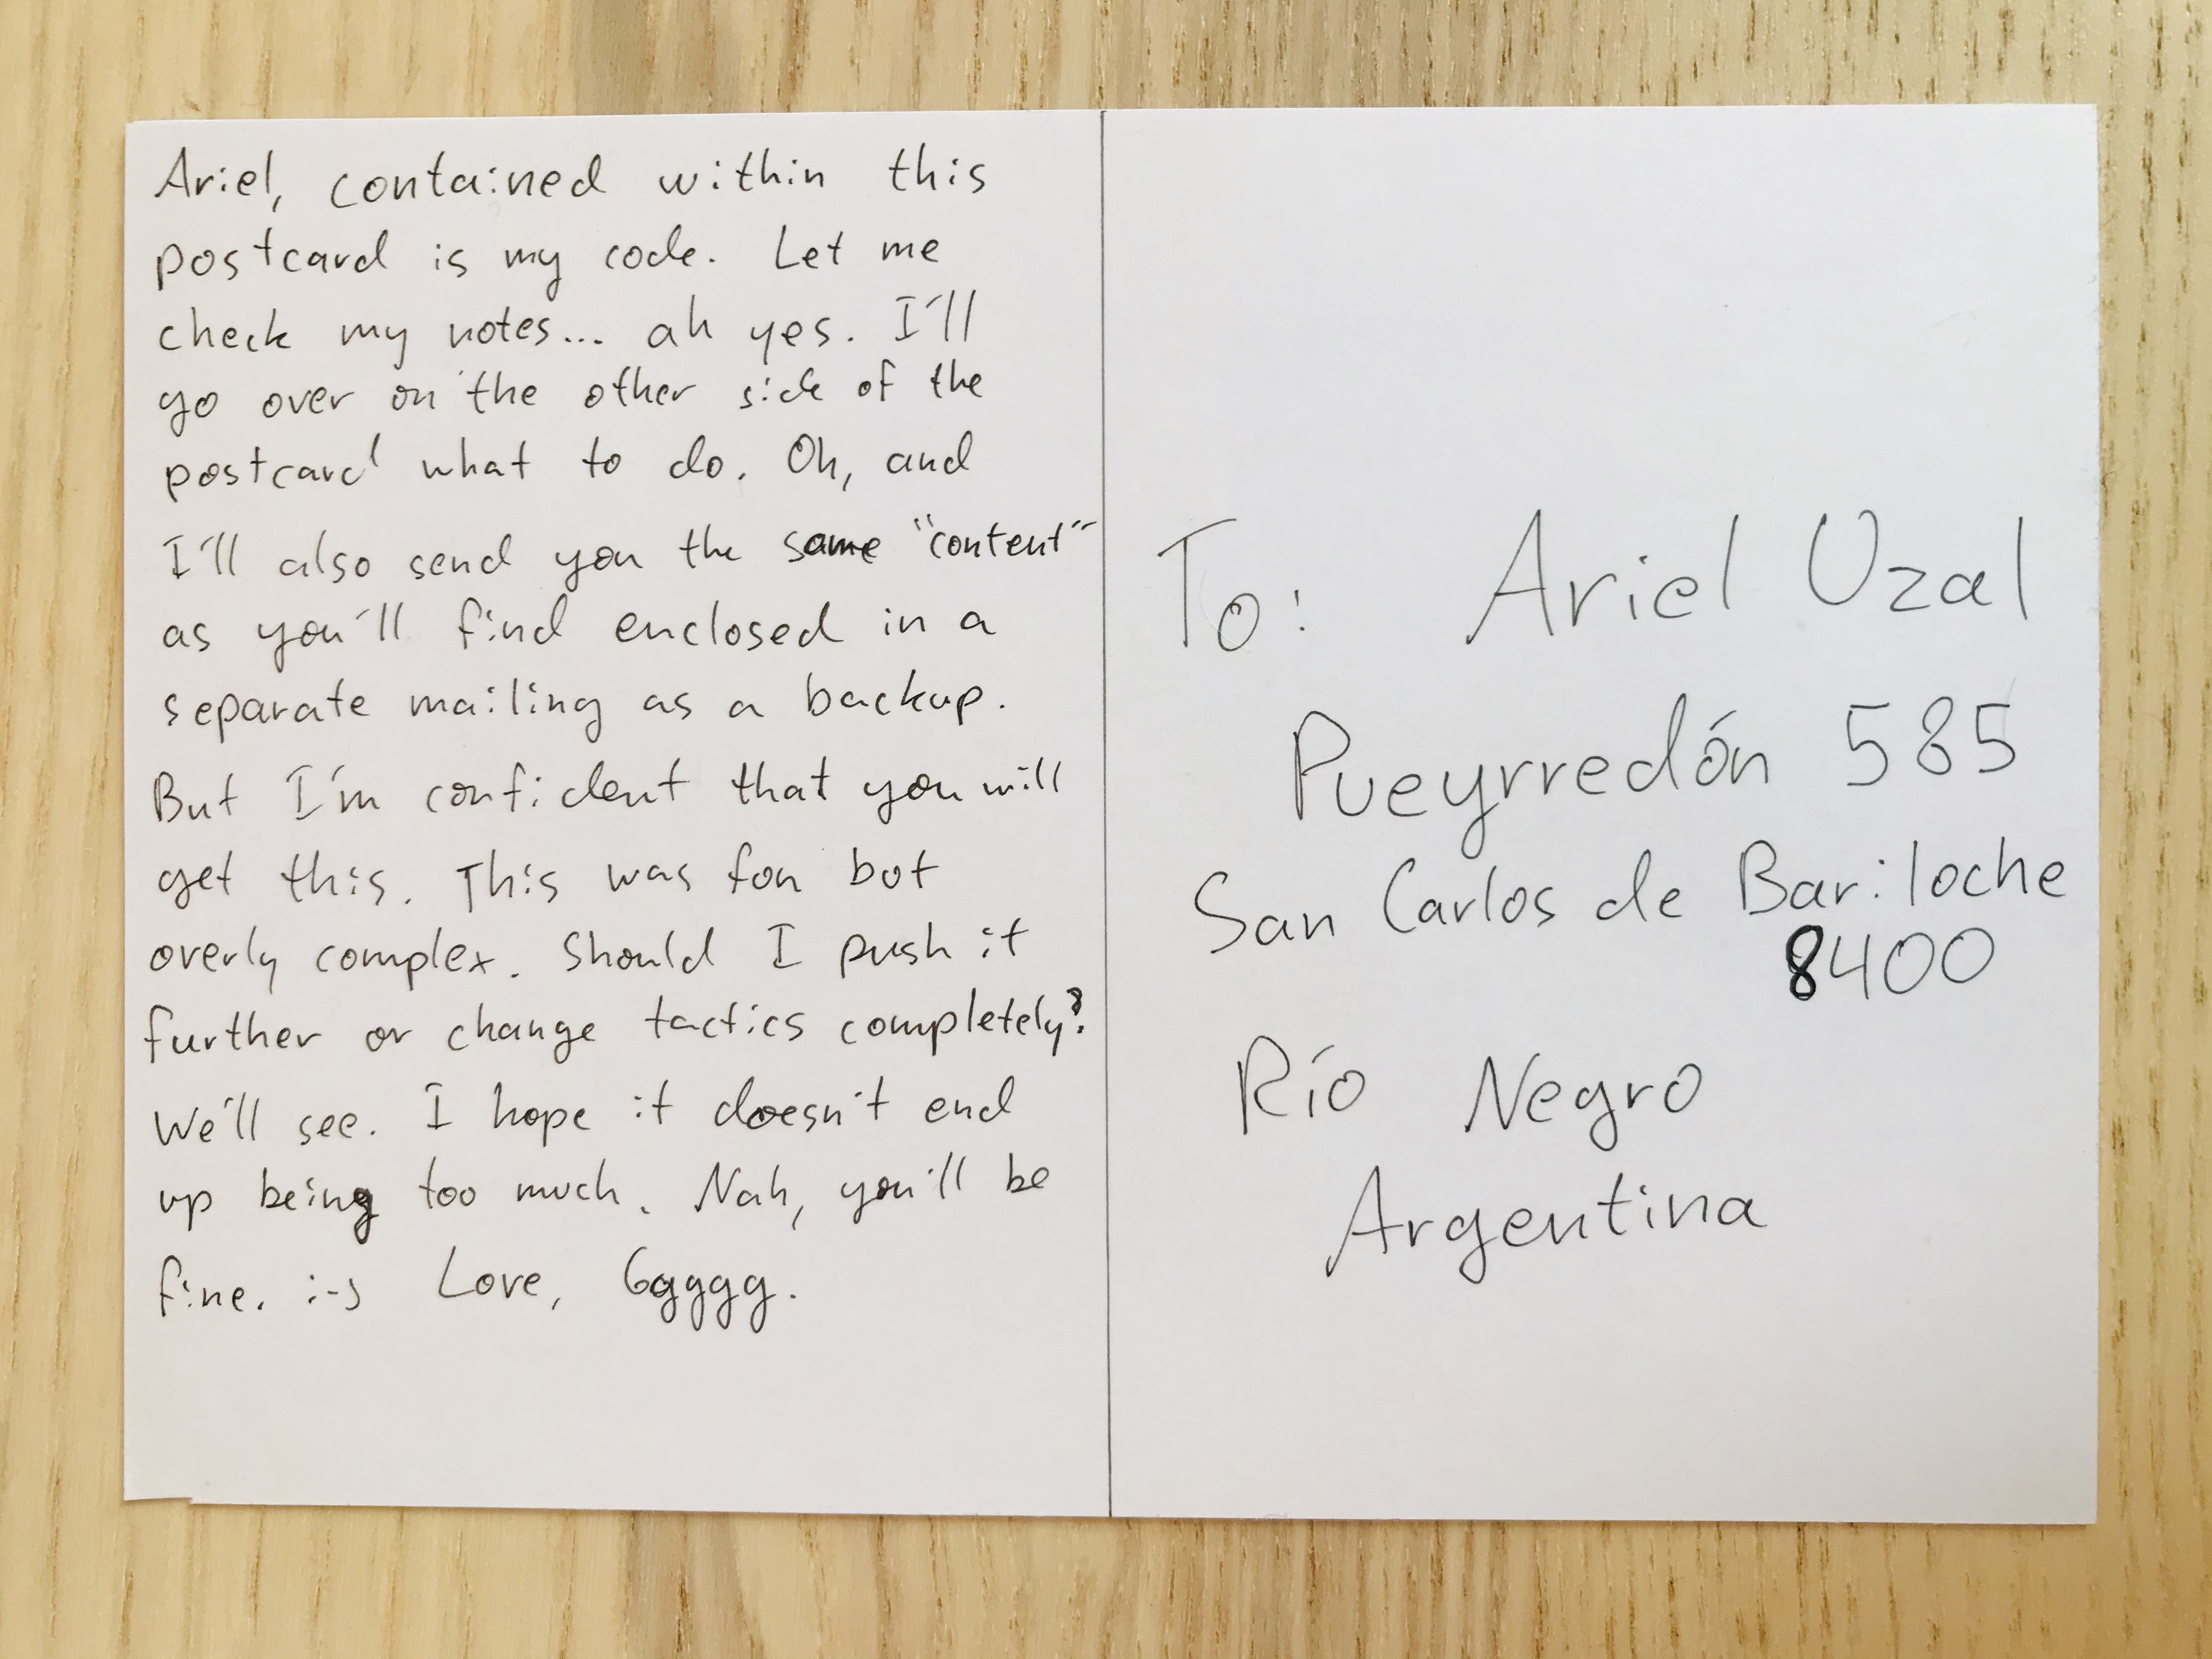 Ariel, contained within this
postcard is my code. Let me
check my notes... ah yes. I'll
go over on the other side of the
postcard what to do. Oh, and
I'll also send you the same "content"
as you'll find enclosed in a
separate mailing as a backup.
But I'm confident that you will
get this. This was fon bot
overly complex. Should I push it
further or change tactics completely?
We'll see. I hope it doesn't end
up being too much. Nah, you'll be
fine. :-) Love, Ggggg.
To: Ariel Uzal
Pueyrredón 585
San Carlos de Bariloche
8400
Río Negro
Argentina